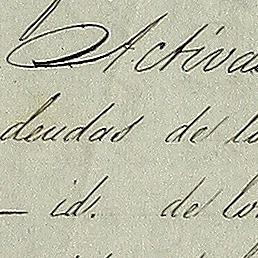 Activas
deudas de lo
— id. de lo